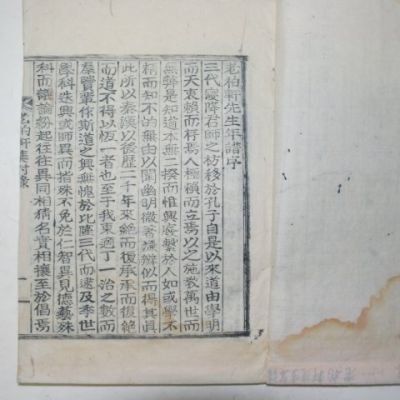 老柏軒先生年譜序
三代慶降君師之枋移於孔子自是以來道由學明
而天衷賴而秆焉人極植而立焉以之施敎萬世而
無弊是知道本無二揆而惟興喪繫於人如或學不
精而知不的無由以闡幽明微著誠辨似而得其眞
此所以秦漢以後歷二千年來絶而復承承而復絶
而道不得以恆一者也至于我東適丁一治之數而
羣賢輩作斯道之興無愧於比隆三代而逮及季世
學科迭興或師異而指殊不免於仁智異見德藝殊
科而議論紛起往往異同相猜名實相攘至於倡焉
老柏軒集附錄
一